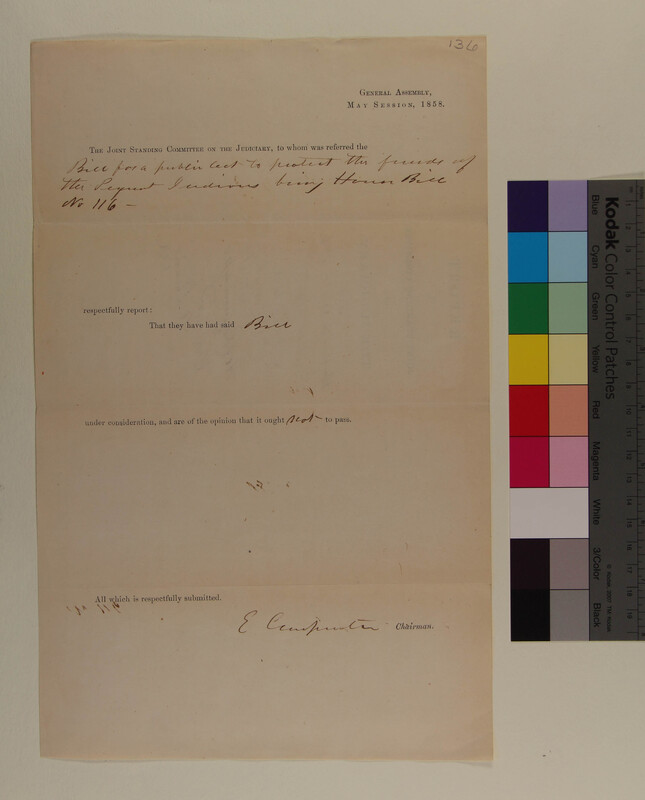 136
General Assembly,
May Session, 1858.
The Joint Standing Committee on the Judiciary, to whom was referred the
Bill for a public act to protect the funds of
the Pequot Indians being House Bill
No 116 –
respectfully report:
That they have had said Bill
under consideration, and are of the opinion that it ought not to pass.
All which is respectfully submitted.
E Carpenter Chairman.
Kodak Color Control Patches
Blue
Cyan
Green
Yellow
Red
Magenta
White
3/Color
Black